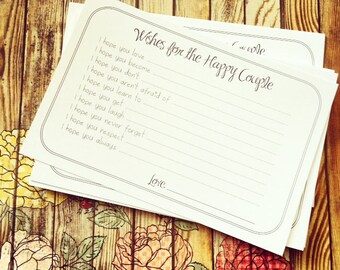 Couple
Wishes for the Happy Couple
I hope you love
I hope you become
I hope you don't
I hope you aren't afraid of
I hope you learn to
I hope you get
I hope you laugh
I hope you never forget
I hope you respect
I hope you always
Love,